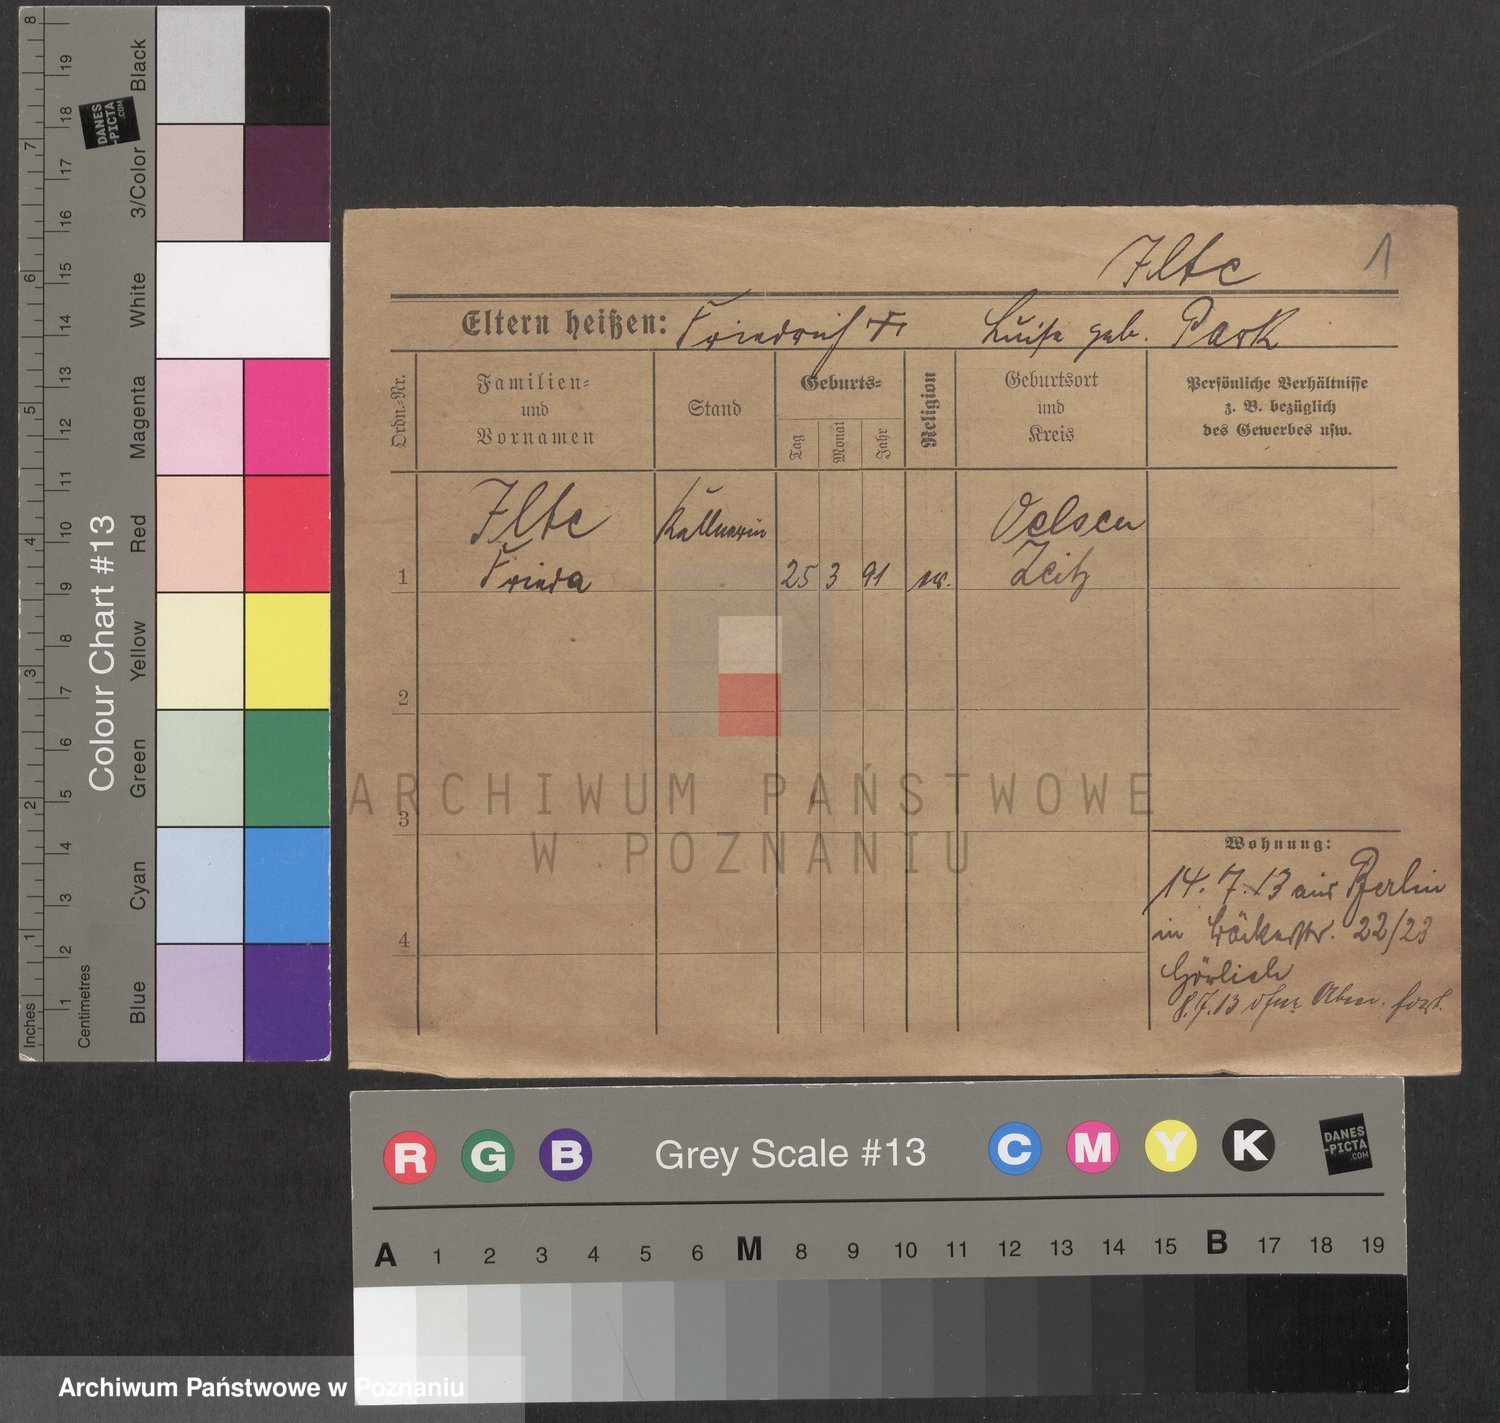 Ilte
1
Eltern heißen: Friedrich † Luise geb. Pask
Ordn.-Nr.
Familien-
und
Vornamen
Stand
Geburts-
Tag
Monat
Jahr
Religion
Geburtsort
und
Kreis
Persönliche Verhältnisse
z. B. bezüglich
des Gewerbes usw.
Ilte
Kellnerin
Oelsen
1
Frieda
25
3
91
ev.
Zeitz
2
3
4
Wohnung:
14. 7. 13 aus Berlin
in Bäckerstr. 22/23
8.7.13 ohne Abm. fort.
ARCHIWUM PAŃSTWOWE
W POZNANIU
Inches
1
2
3
4
5
6
7
8
Centimetres
1
2
3
4
5
6
7
8
9
10
11
12
13
14
15
16
17
18
19
Colour Chart #13
Blue
Cyan
Green
Yellow
Red
Magenta
White
3/Color
Black
DANES
-PICTA
.COM
R G B Grey Scale #13 C M Y K
DANES
-PICTA
.COM
A 1 2 3 4 5 6 M 8 9 10 11 12 13 14 15 B 17 18 19
Archiwum Państwowe w Poznaniu